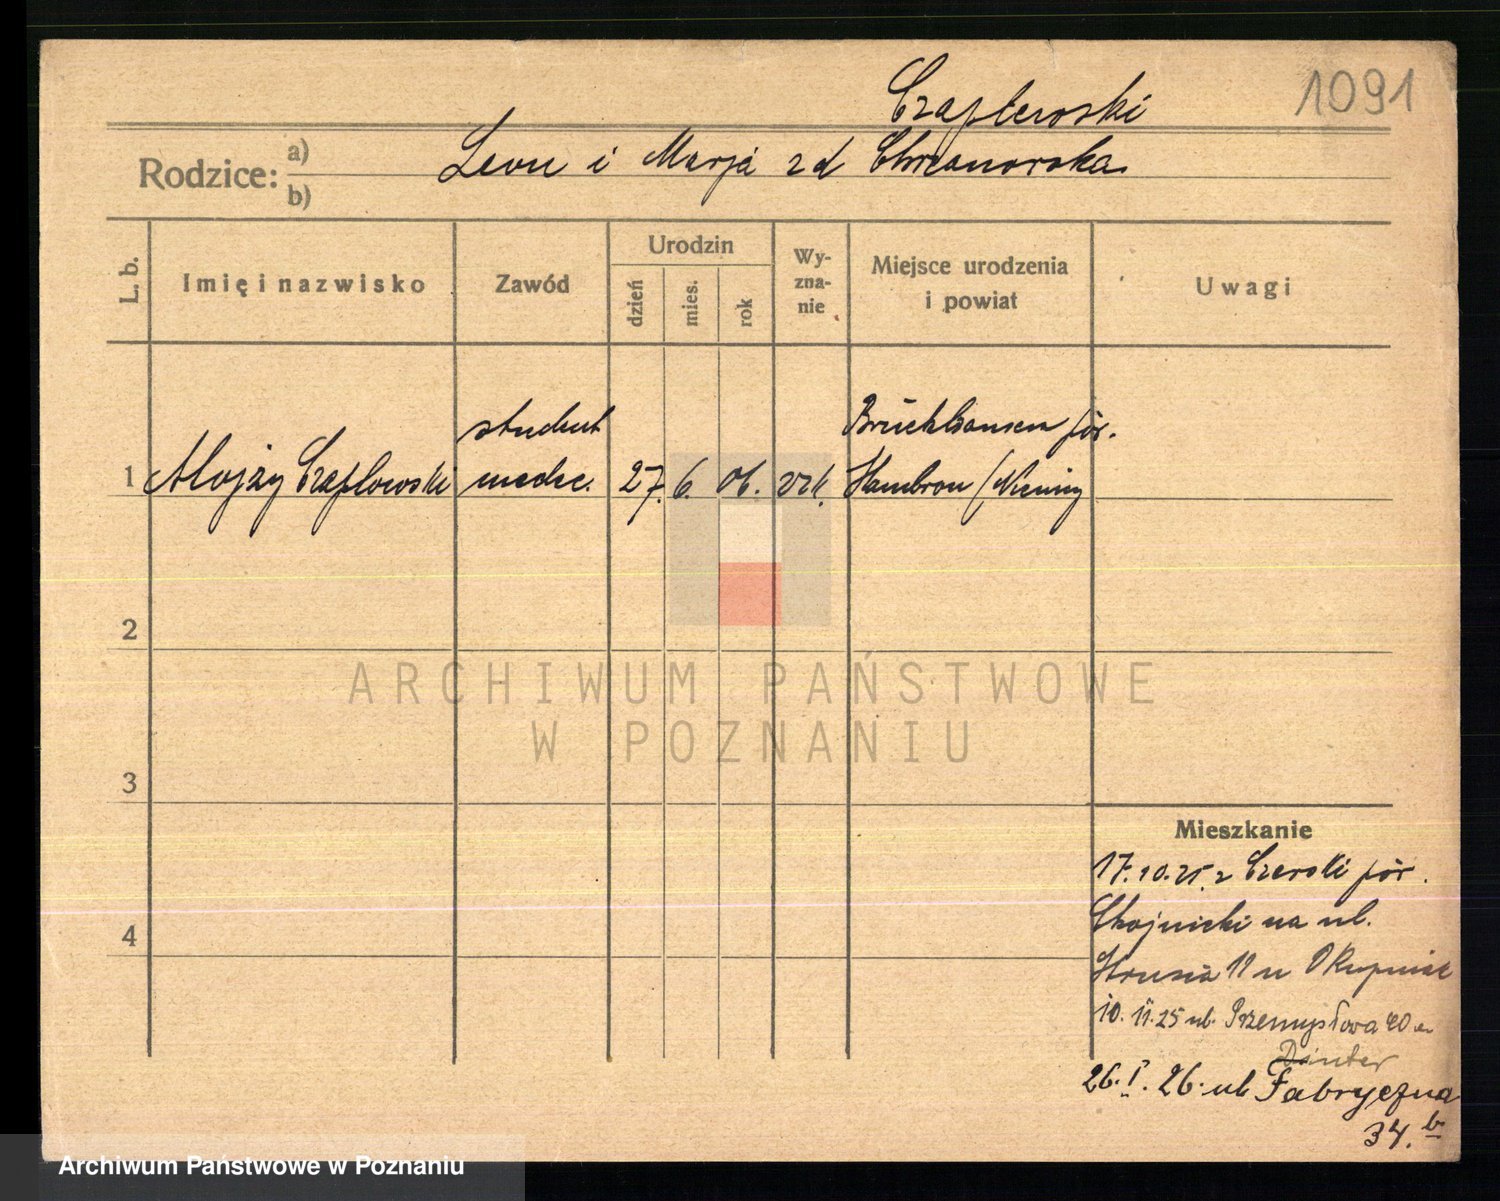 1091
Czaplewski
Rodzice: a) b)
Leon i Marja zd Chrzanowska
L. b.
Imię i nazwisko
Zawód
Urodzin
dzień
mies.
rok
Wy-
zna-
nie
Miejsce urodzenia
i powiat
Uwagi
student
Bruckhausen pow.
1 Alojzy Czaplewski medec. 27. 6. 06. rzk. Hamborn (Niemcy
2
ARCHIWUM PAŃSTWOWE
W POZNANIU
3
Mieszkanie
17.10.25. z Czerski pow.
4
Chojnicki na ul.
Strusia 11 u
10. 11. 25 ul. Przemysłowa 40 u
Dinter
26. I. 26. ul Fabryczna
34. b
Archiwum Państwowe w Poznaniu